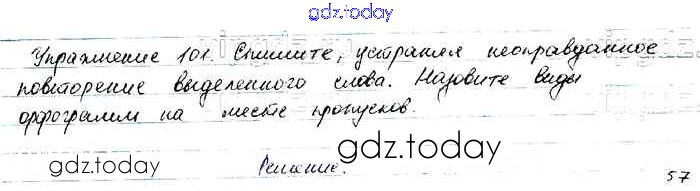 gdz.today
Упражнение 101. Спишите, устраняя неоправданное
повторение выделенного слова. Назовите виды
орфограмм на месте пропусков.
gdz.today
gdz.today
Решение.
57